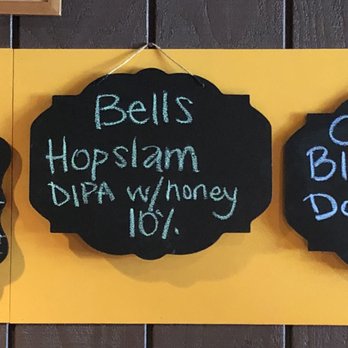 Bells
Hopslam
DIPA w/honey
10%